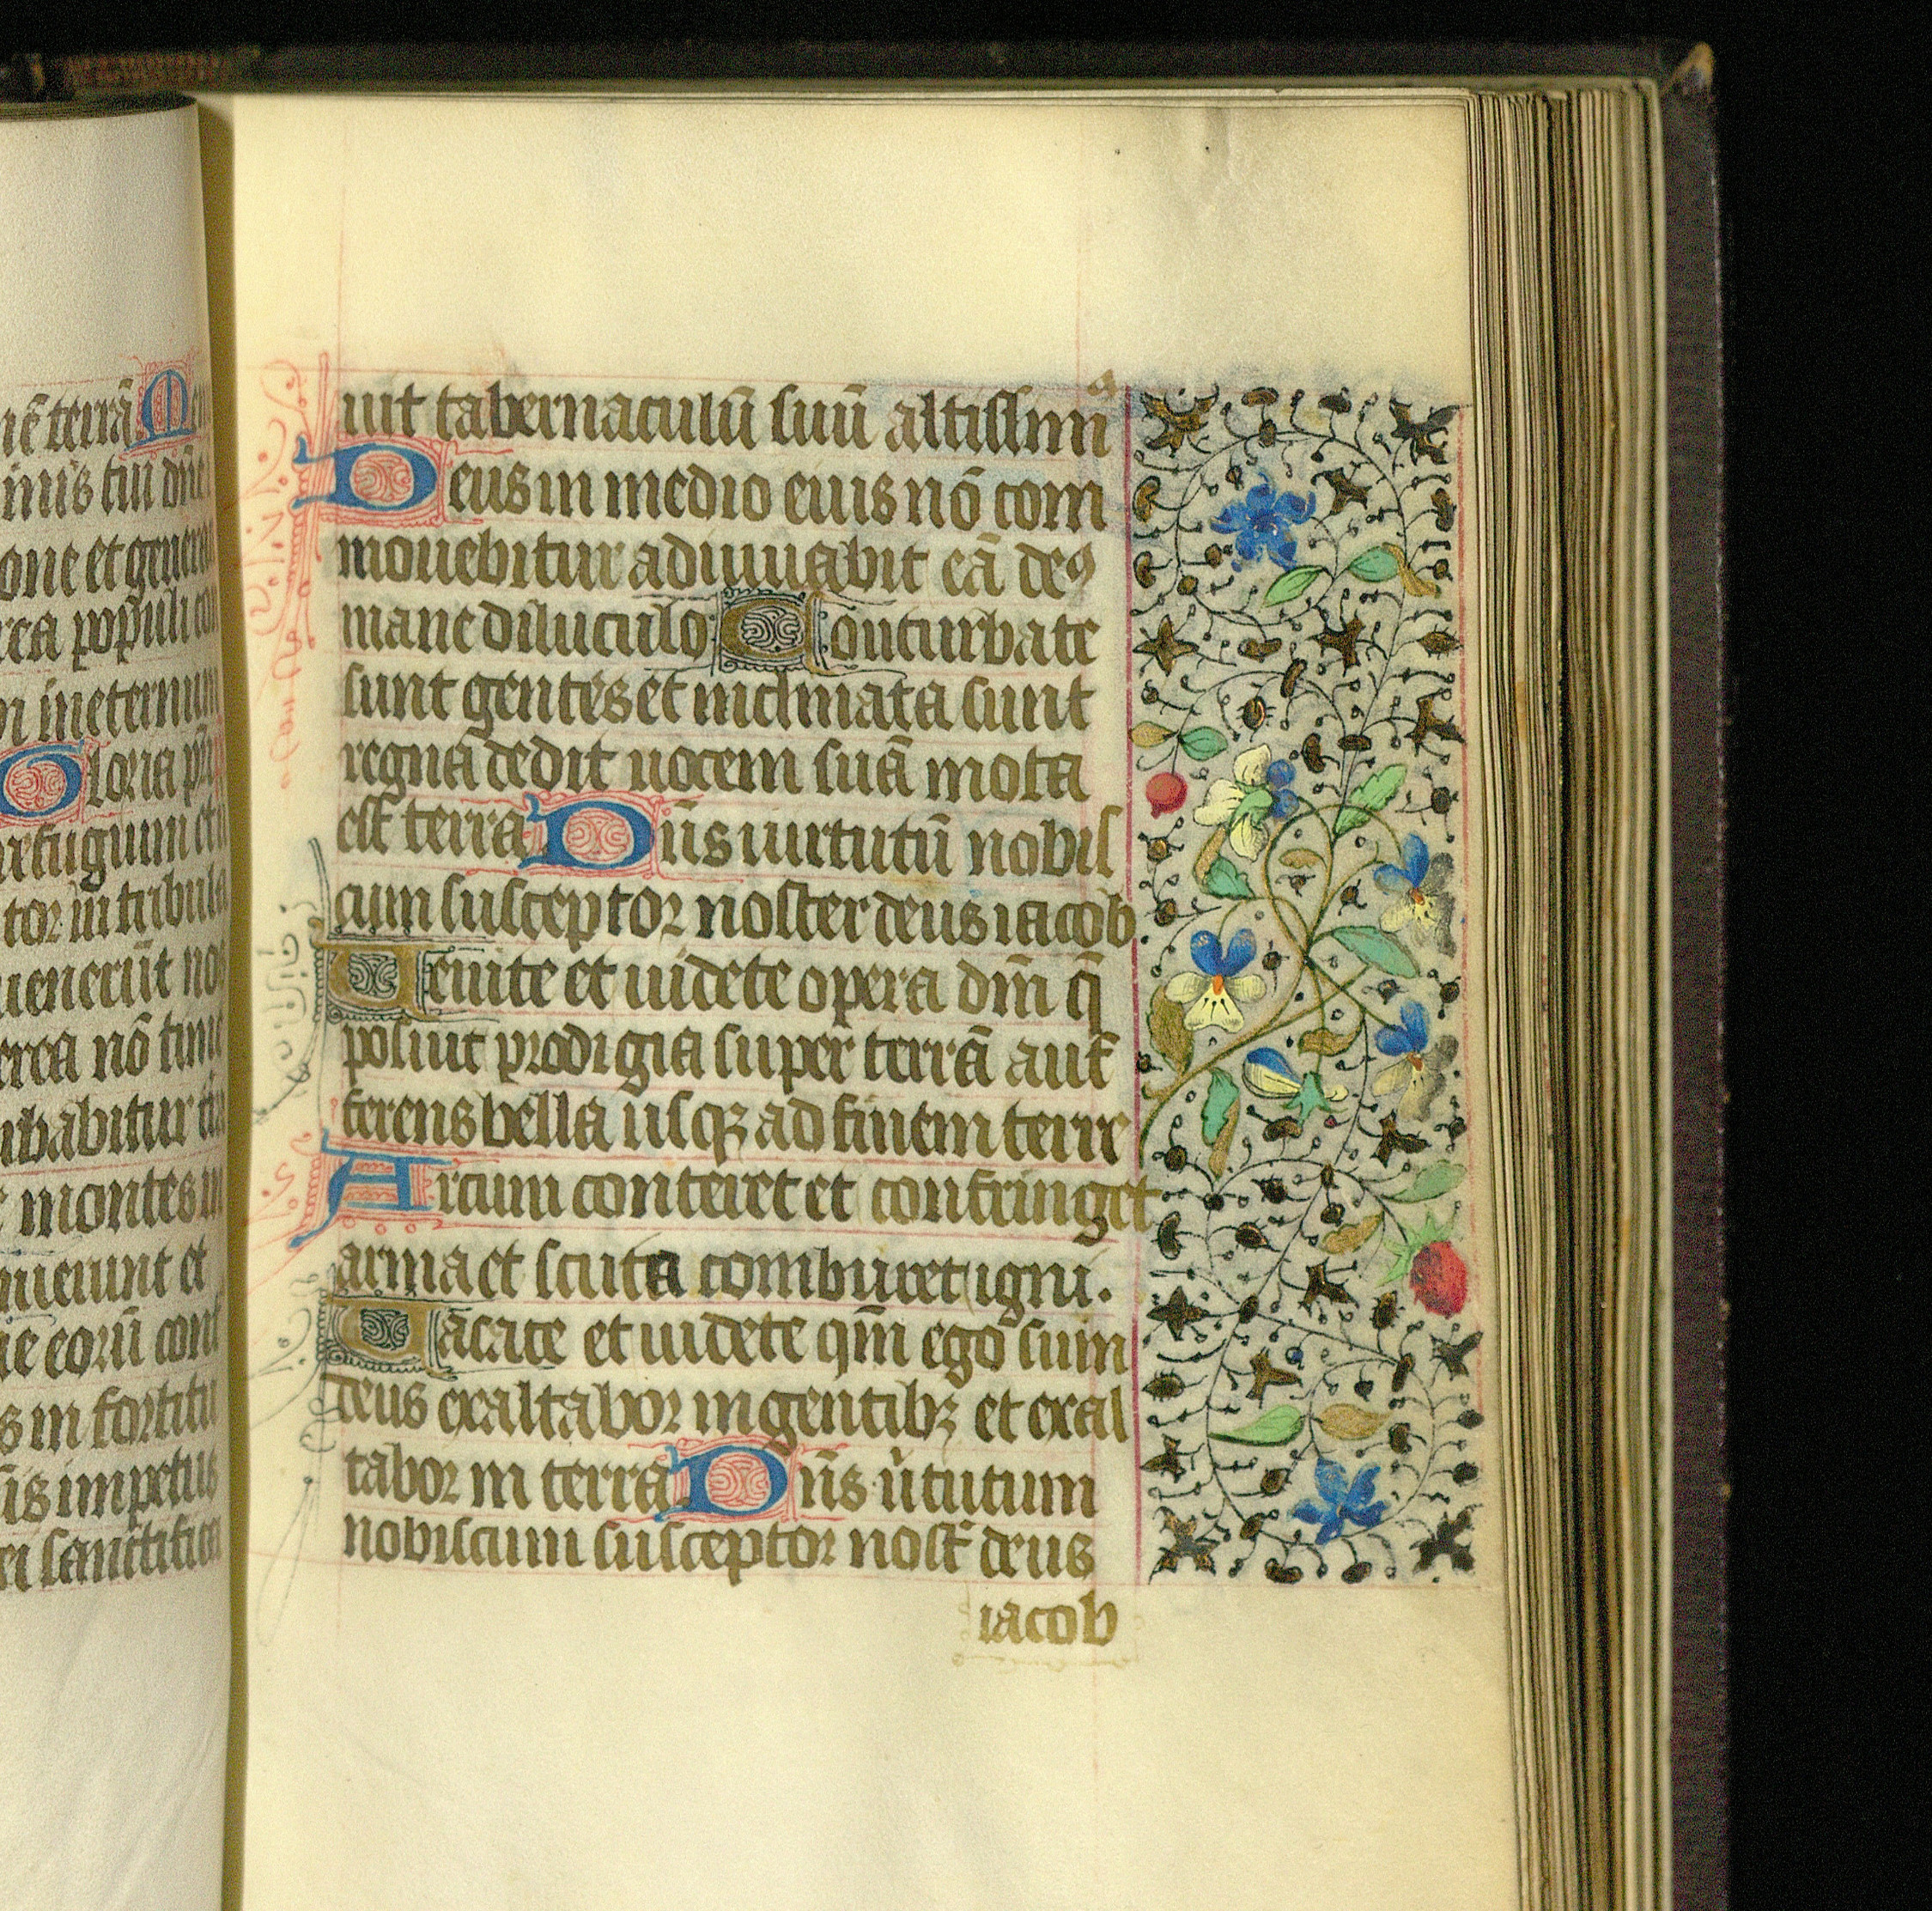 nē terrā Me
inis tui dn̄e
one et genera
rea populi con
in ineternum
Gloria pr̄i
refugium et u
tor in tribula
uenerūt nos
erea nō time
babitur ter
montes in
nuerunt et
ne eorū cont
s in fortitu
is impetus
ei sanctifica
uit tabernaculū suū altissim9
Deus in medio eius nō com
mouebitur adiuuabit eā de9
mane diluculo Conturbate
sunt gentes et inclinata sunt
regna dedit uocem suā mota
est terra Dn̄s uirtutū nobis
cum susceptor noster deus iacob
Uenite et uidete opera dn̄i q̄
posuit prodigia super terrā auf
ferens bella usqꝫ ad finem terre
Arcum conteret et confringet
arma et scuta comburet igni.
Uacate et uidete qm̄ ego sum
deus exaltabor in gentibꝫ et exal
tabor in terra Dn̄s uͥtutum
nobiscum susceptor nost̄ deus
iacob